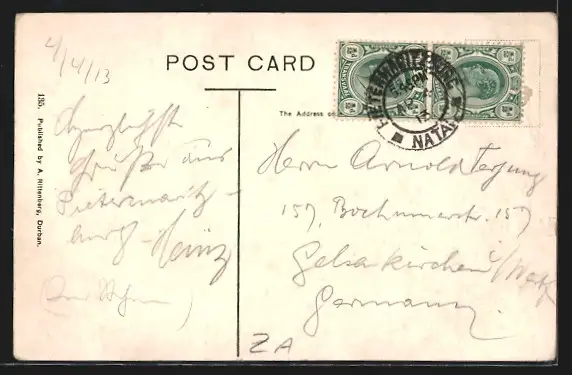 4/4/13
POST CARD
The Address on
PIETERMARITZBURG
NATAL
Herzlichste
Grüße aus
Pietermaritz-
burg Heinz
Herrn Arnold Terjung
157, Bochumerstr. 157
Gelsenkirchen i/Westf
Germany
1135. Published by A. Rittenberg, Durban.
ZA